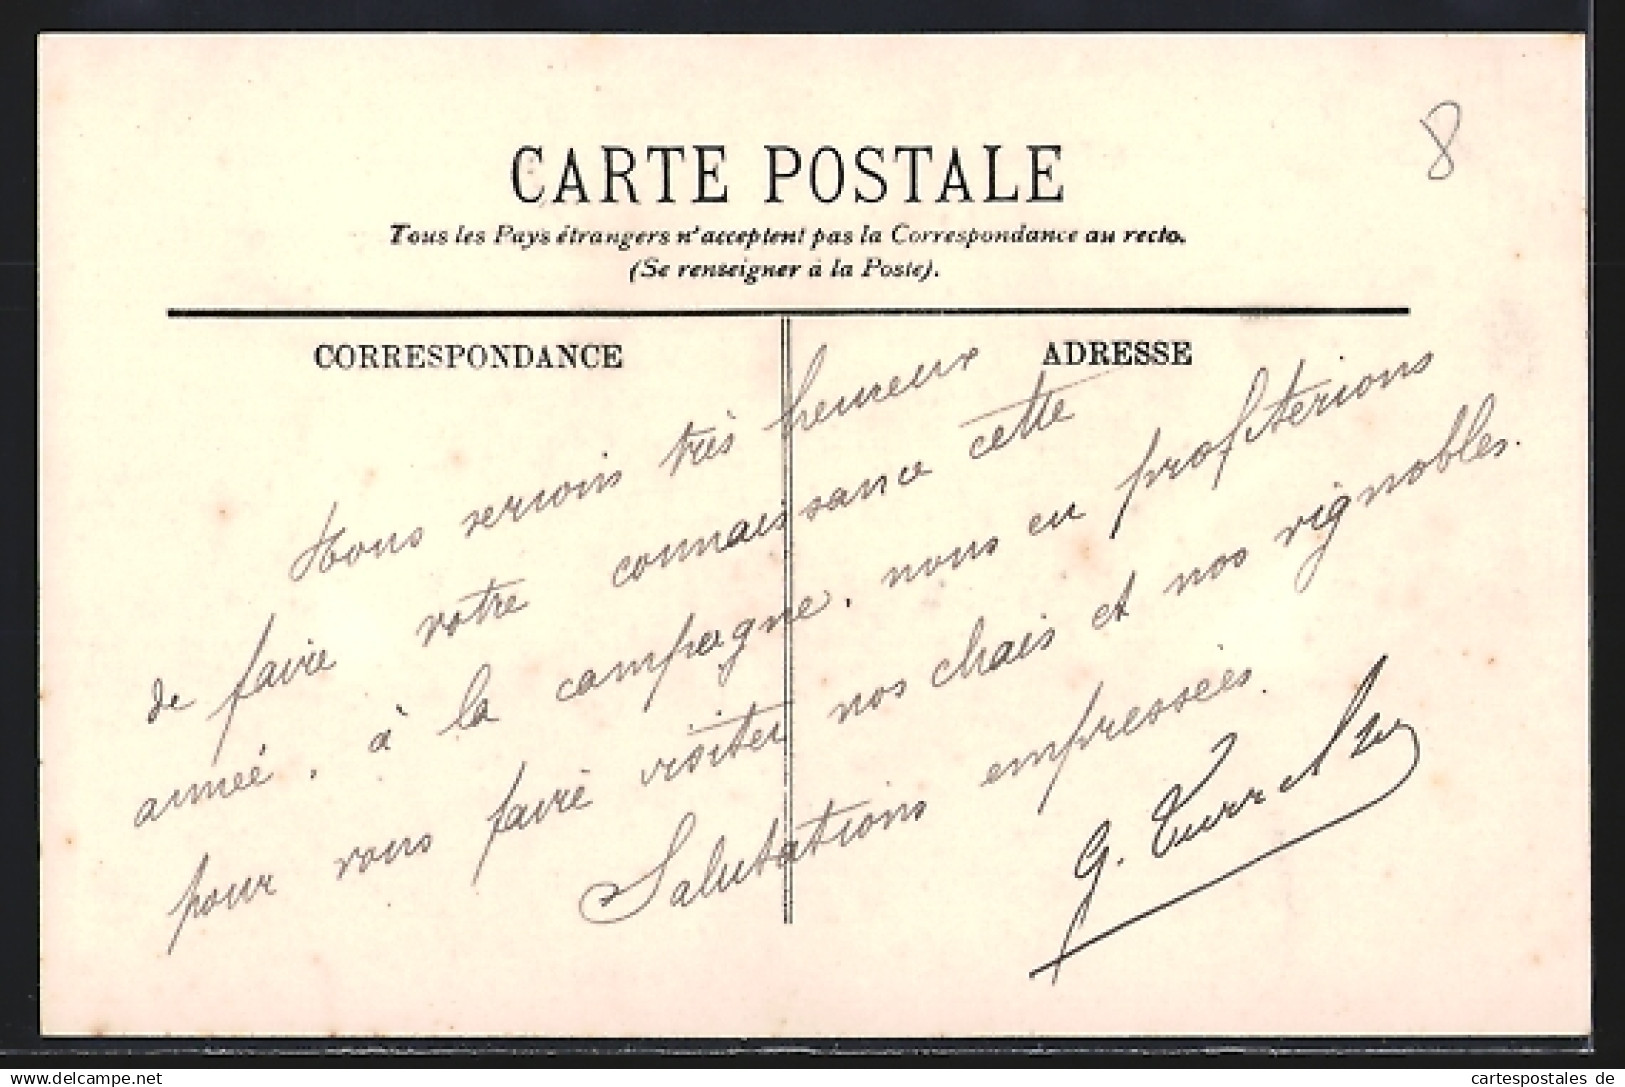 8
CARTE POSTALE
Tous les Pays étrangers n'acceptent pas la Correspondance au recto.
(Se renseigner à la Poste).
CORRESPONDANCE
ADRESSE
Nous serions très heureux
de faire votre connaissance cette
année, à la campagne, nous en profiterions
pour vous faire visiter nos chais et nos vignobles.
Salutations empressées.
G.
www.delcampe.net
cartespostales de